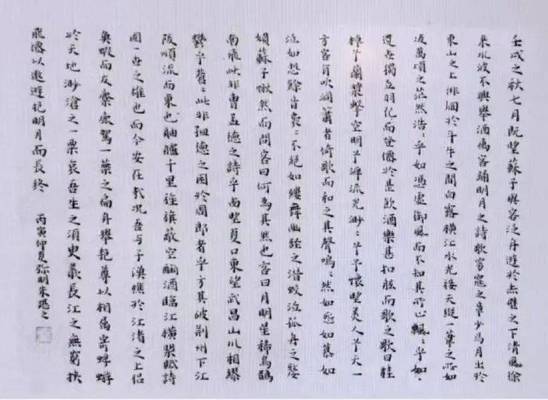 壬戌之秋七月既望蘇子與客泛舟遊於赤壁之下清風徐
來水波不興舉酒屬客誦明月之詩歌窈窕之章少焉月出於
東山之上徘徊於斗牛之間白露橫江水光接天縱一葦之所如
凌萬頃之茫然浩〻乎如憑虛御風而不知其所止飄〻乎如
遺世獨立羽化而登僊於是飲酒樂甚扣舷而歌之歌曰桂
棹兮蘭槳擊空明兮泝流光渺〻兮予懷望美人兮天一
方客有吹洞簫者倚歌而和之其聲嗚〻然如怨如慕如
泣如愬餘音裊〻不絕如縷舞幽壑之潛蛟泣孤舟之嫠
婦蘇子愀然而問客曰何為其然也客曰月明星稀烏鵲
南飛此非曹孟德之詩乎西望夏口東望武昌山川相繆
鬱乎蒼〻此非孟德之困於周郎者乎方其破荊州下江
陵順流而東也舳艫千里旌旗蔽空釃酒臨江橫槊賦詩
固一世之雄也而今安在哉況吾與子漁樵於江渚之上侶
魚蝦而友麋鹿駕一葉之扁舟舉匏尊以相屬寄蜉蝣
於天地渺滄之一粟哀吾生之須臾羨長江之無窮挾
飛僊以遨遊抱明月而長終 丙寅仲夏